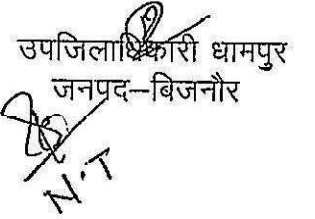 उपजिलाधिकारी धामपुर
जनपद–बिजनौर
N.T